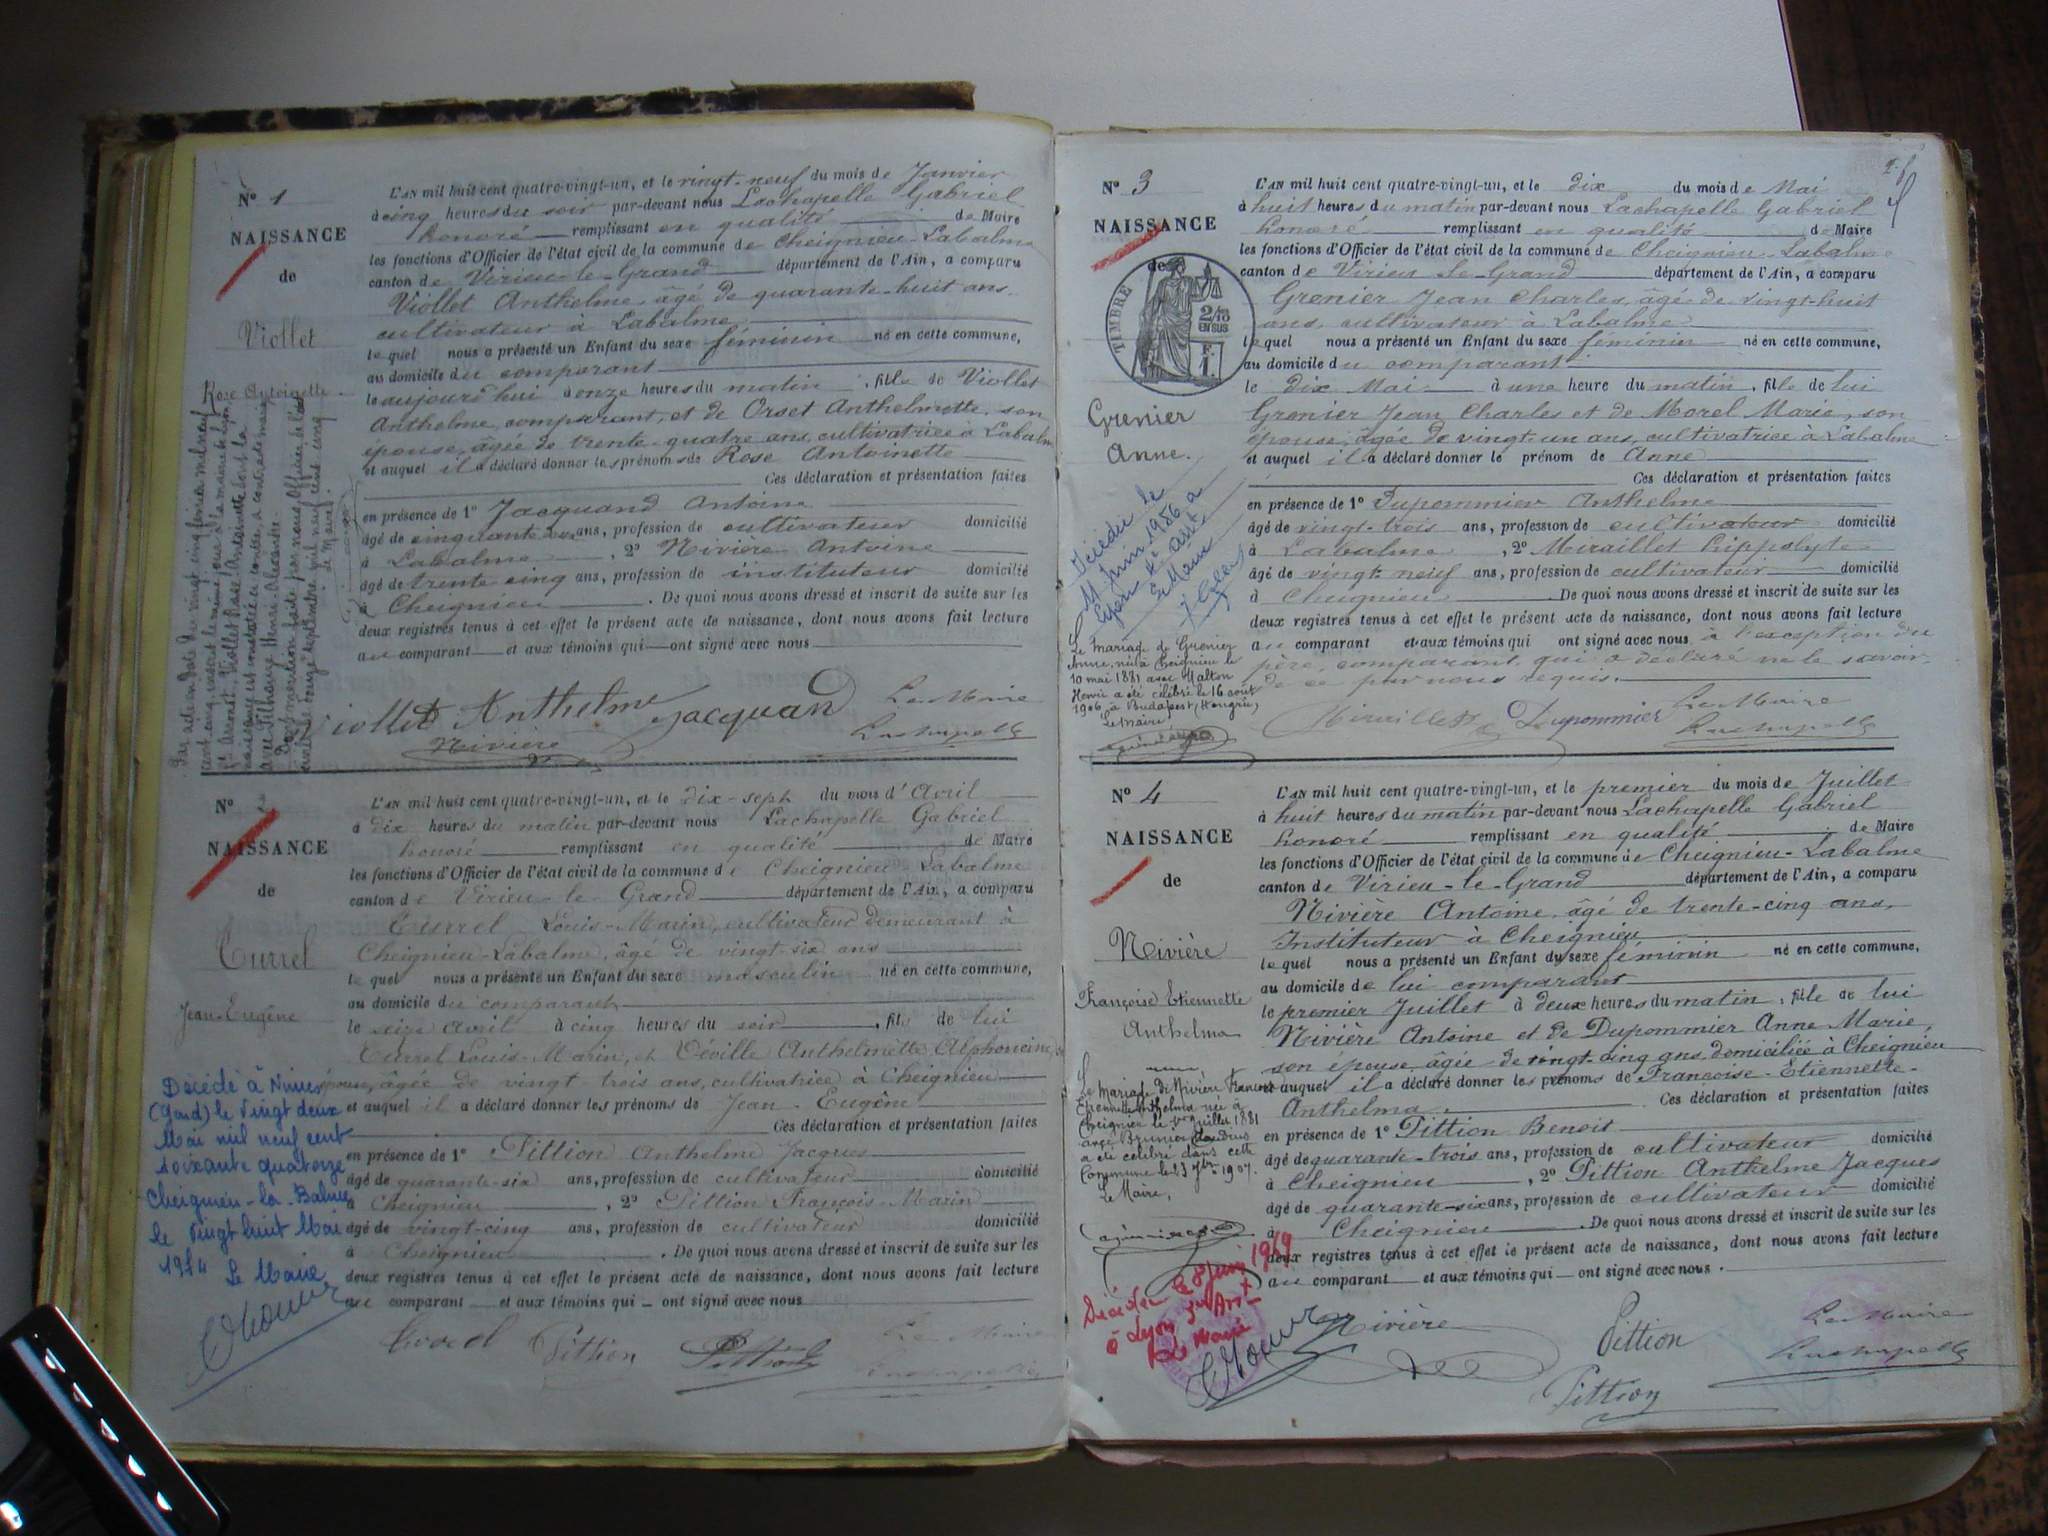 N° 1
NAISSANCE
de
Viollet
Rose Antoinette
L'AN mil huit cent quatre-vingt-un, et le vingt-neuf du mois de Janvier
à cinq heures du soir par-devant nous Lachapelle Gabriel
honoré remplissant en qualité de Maire
les fonctions d'Officier de l'état civil de la commune de Cheignieu-Labalme
canton de Virieu-le-Grand département de l'Ain, a comparu
Viollet Anthelme, âgé de quarante-huit ans
cultivateur à Labalme
lequel nous a présenté un Enfant du sexe féminin né en cette commune,
au domicile du comparant
le aujourd'hui à onze heures du matin, fille de Viollet
Anthelme, comparant, et de Orset Anthelmette, son
épouse, âgée de trente-quatre ans, cultivatrice à Labalme
et auquel il a déclaré donner les prénoms de Rose Antoinette
Ces déclaration et présentation faites
en présence de 1° Jacquand Antoine
âgé de cinquante ans, profession de cultivateur domicilié
à Labalme, 2° Nivière Antoine
âgé de trente cinq ans, profession de instituteur domicilié
à Cheignieu. De quoi nous avons dressé et inscrit de suite sur les
deux registres tenus à cet effet le présent acte de naissance, dont nous avons fait lecture
au comparant et aux témoins qui ont signé avec nous
Viollet Anthelme Jacquand Le Maire
Nivière Lachapelle
N°
NAISSANCE
de
Turrel
Jean-Eugène
Décédé à Nîmes
(Gard) le vingt deux
Mai mil neuf cent
soixante quatorze
Cheignieu-la-Balme
le vingt huit Mai
1974 Le Maire
L'AN mil huit cent quatre-vingt-un, et le dix-sept du mois d'Avril
à dix heures du matin par-devant nous Lachapelle Gabriel
honoré remplissant en qualité de Maire
les fonctions d'Officier de l'état civil de la commune de Cheignieu Labalme
canton de Virieu-le-Grand département de l'Ain, a comparu
Turrel Louis-Marin, cultivateur demeurant à
Cheignieu-Labalme, âgé de vingt-six ans
lequel nous a présenté un Enfant du sexe masculin né en cette commune,
au domicile du comparant
le seize Avril à cinq heures du soir, fils de lui
Turrel Louis-Marin, et Anthelmette Alphonsine
épouse, âgée de vingt-trois ans, cultivatrice à Cheignieu
et auquel il a déclaré donner les prénoms de Jean-Eugène
Ces déclaration et présentation faites
en présence de 1° Pittion Anthelme Jacques
âgé de quarante-six ans, profession de cultivateur domicilié
à Cheignieu, 2° Pittion François-Marin
âgé de vingt-cinq ans, profession de cultivateur domicilié
à Cheignieu. De quoi nous avons dressé et inscrit de suite sur les
deux registres tenus à cet effet le présent acte de naissance, dont nous avons fait lecture
au comparant et aux témoins qui ont signé avec nous
Pittion Pittion Le Maire
Lachapelle
N° 3
NAISSANCE
de
TIMBRE
2/10
EN SUS
F.
1.
Grenier
Anne.
Décédée le
11 Juin 1956 à
Lyon
Le Maire
Le Mariage de Grenier
Anne, née à Cheignieu le
10 mai 1881 avec Malton
Henri a été célébré le 16 août
1906, à Budapest (Hongrie)
Le Maire
L'AN mil huit cent quatre-vingt-un, et le dix du mois de Mai
à huit heures du matin par-devant nous Lachapelle Gabriel
honoré remplissant en qualité de Maire
les fonctions d'Officier de l'état civil de la commune de Cheignieu Labalme
canton de Virieu le-Grand département de l'Ain, a comparu
Grenier Jean Charles, âgé de vingt-huit
ans, cultivateur à Labalme
lequel nous a présenté un Enfant du sexe féminin né en cette commune,
au domicile du comparant
le dix Mai à une heure du matin, fille de lui
Grenier Jean Charles et de Morel Marie, son
épouse, âgée de vingt-un ans, cultivatrice à Labalme
et auquel il a déclaré donner le prénom de Anne
Ces déclaration et présentation faites
en présence de 1° Dupommier Anthelme
âgé de vingt-trois ans, profession de cultivateur domicilié
à Labalme, 2° Miraillet Hippolyte
âgé de vingt-neuf ans, profession de cultivateur domicilié
à Cheignieu. De quoi nous avons dressé et inscrit de suite sur les
deux registres tenus à cet effet le présent acte de naissance, dont nous avons fait lecture
au comparant et aux témoins qui ont signé avec nous à l'exception du
père, comparant, qui a déclaré ne le savoir,
de ce par nous requis.
Miraillet Dupommier Le Maire
Lachapelle
N° 4
NAISSANCE
de
Nivière
Françoise Etiennette
Anthelma
Le Mariage de Nivière Françoise
Etiennette Anthelma née à
Cheignieu le 1er juillet 1881
avec Brunier Claudius
a été célébré dans cette
Commune le 23 7bre 1907.
Le Maire,
Décédée le 8 Juin 1969
à Lyon 3me Arrt
Le Maire
L'AN mil huit cent quatre-vingt-un, et le premier du mois de Juillet
à huit heures du matin par-devant nous Lachapelle Gabriel
honoré remplissant en qualité de Maire
les fonctions d'Officier de l'état civil de la commune de Cheignieu-Labalme
canton de Virieu-le-Grand département de l'Ain, a comparu
Nivière Antoine, âgé de trente-cinq ans,
Instituteur à Cheignieu
lequel nous a présenté un Enfant du sexe féminin né en cette commune,
au domicile de lui comparant
le premier Juillet à deux heures du matin, fille de lui
Nivière Antoine et de Dupommier Anne Marie,
son épouse, âgée de vingt-cinq ans domiciliée à Cheignieu
et auquel il a déclaré donner les prénoms de Françoise-Etiennette-
Anthelma. Ces déclaration et présentation faites
en présence de 1° Pittion Benoit
âgé de quarante-trois ans, profession de cultivateur domicilié
à Cheignieu, 2° Pittion Anthelme Jacques
âgé de quarante-six ans, profession de cultivateur domicilié
à Cheignieu. De quoi nous avons dressé et inscrit de suite sur les
deux registres tenus à cet effet le présent acte de naissance, dont nous avons fait lecture
au comparant et aux témoins qui ont signé avec nous.
Nivière Pittion Le Maire
Pittion Lachapelle